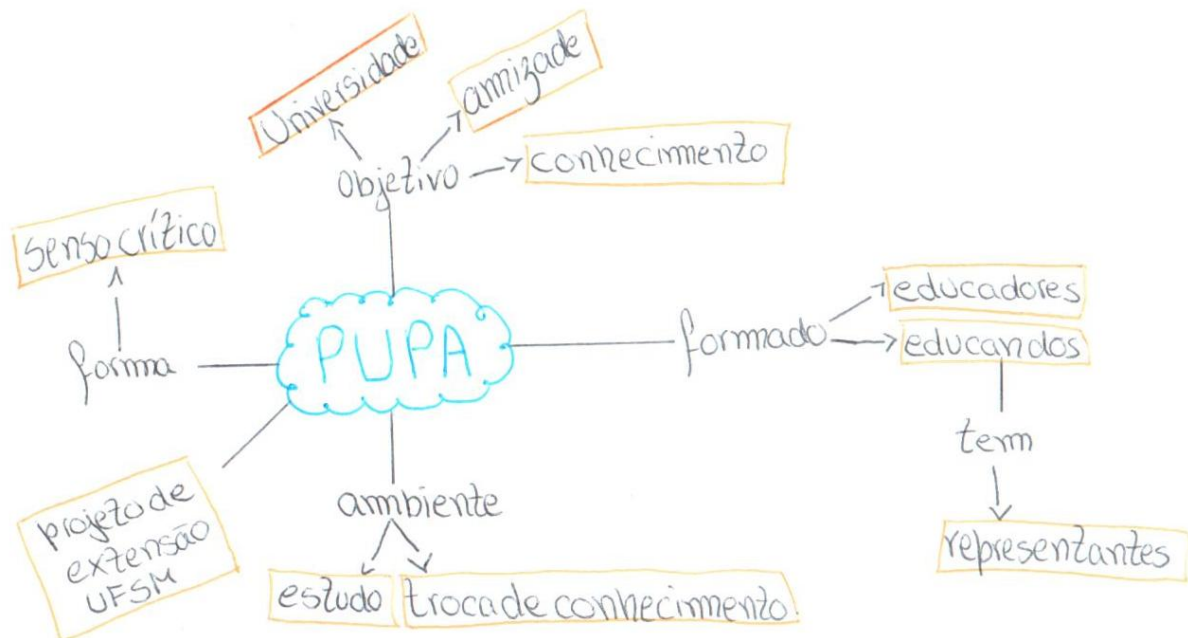 Universidade
amizade
Objetivo
conhecimento
senso crítico
forma
PUPA
formado
educadores
educandos
tem
representantes
projeto de
extensão
UFSM
ambiente
estudo
troca de conhecimento.